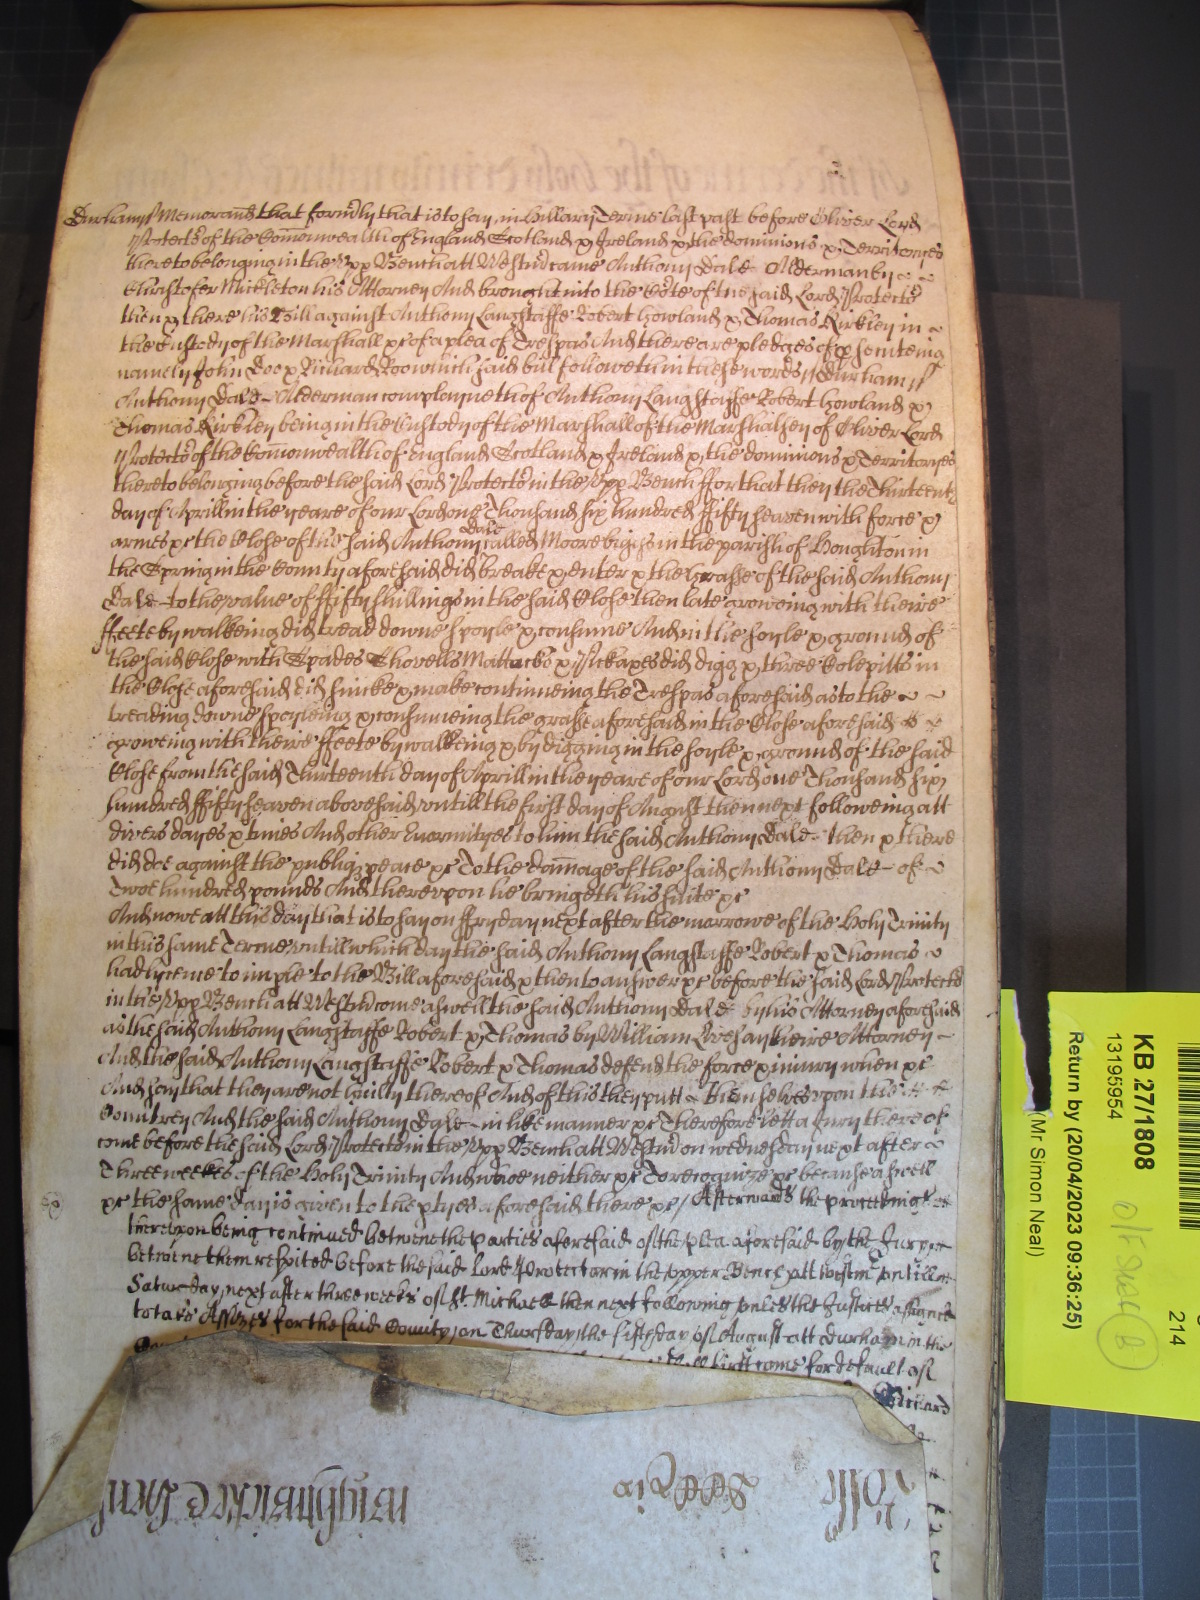 Durham ss Memorand that formly that is to say in Hillary Terme last past before Oliver Lord
Protector of the Comonwealth of England Scotland & Ireland & the dominions & Territoryes
thereto belonging in the Upp Bench att Westm came Anthony Dale Alderman by
Christofer Mickleton his Attorney And brought into the Cote of the said Lord Protector
then & there his Bill against Anthony Langstaffe Robert Howland & Thomas Kirkley in
the Custody of the Marshall &c of a plea of Trespas And there are pledges of psecuteing
namely John Doe & Richard Roo which said bill followeth in these words ss Durham ss
Anthony Dale Alderman complayneth of Anthony Langstaffe Robert Howland &
Thomas Kirkley being in the Custody of the Marshall of the Marshalsey of Oliver Lord
Protector of the Comonwealth of England Scotland & Ireland & the dominions & Territoryes
thereto belonging before the said Lord Protector in the Upp Bench ffor that they the Thirteenth
day of Aprill in the yeare of our Lord one Thousand six hundred ffifty seaven with force &
armes &c the Close of the said Anthony Dale called Moore in the parish of Houghton in
the Spring in the County aforesaid did breake & enter & the Grasse of the said Anthony
Dale to the value of ffifty shillings in the said Close then late groweing with theire
ffeete by walkeing did tread downe spoyle & consume And in the soyle & ground of
the said Close with Spades Shovells Mattocks & Pickaxes did digg & three Colepitts in
the Close aforesaid did sincke & make continueing the Trespas aforesaid as to the
treading downe spoyleing & consumeing the grasse aforesaid in the Close aforesaid
groweing with theire ffeete by walkeing & by digging in the soyle & ground of the said
Close from the said Thirteenth day of Aprill in the yeare of our Lord one Thousand six
hundred ffifty seaven abovesaid untill the first day of August then next followeing att
divers dayes & times And other Enormityes to him the said Anthony Dale then & there
did doe against the publiq peace &c To the damage of the said Anthony Dale of
Twoe hundred pounds And thereupon he bringeth his suite &c
And nowe att this day that is to say on ffryday next after the morrowe of the Holy Trinity
in this same Terme untill which day the said Anthony Langstaffe Robert & Thomas
had lycence to imple to the Bill aforesaid & then to answer &c before the said Lord Protector
in the Upp Bench att Westm come aswell the said Anthony Dale by his Attorney aforesaid
as the said Anthony Langstaffe Robert & Thomas by William theire Attorney
And the said Anthony Langstaffe Robert & Thomas defend the force & iniury when &c
And say that they are not Guilty thereof And of this they putt themselves upon the
Countrey And the said Anthony Dale in like manner &c Therefore lett a Jury thereof
come before the said Lord Protector in the Upp Bench att Westm on wednesday next after
Three weekes of the Holy Trinity And whoe neither &c To recognize &c because aswell
&c the same day is given to the ptyes aforesaid there &c/ Afterwards the proceedings
thereupon being continued betweene the parties aforesaid of the plea aforesaid by the Jurye
betweene them respited before the said Lord Protector in the Upper Bench att Westm untill
Saturday next after three weeks of St. Michael then next following unles the Justices assigned
to take Assizes for the said County on Thursday the fifth day of August att Durham in the
shall first come for default of
KB 27/1808
13195954
Return by (20/04/2023 09:36:25)
(Mr Simon Neal)
214
B